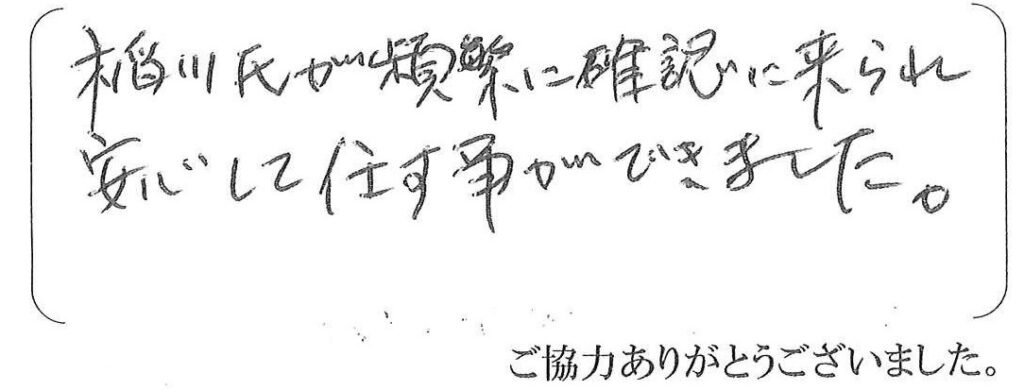 稲川氏が頻繁に確認に来られ
安心して任す事ができました。
ご協力ありがとうございました。